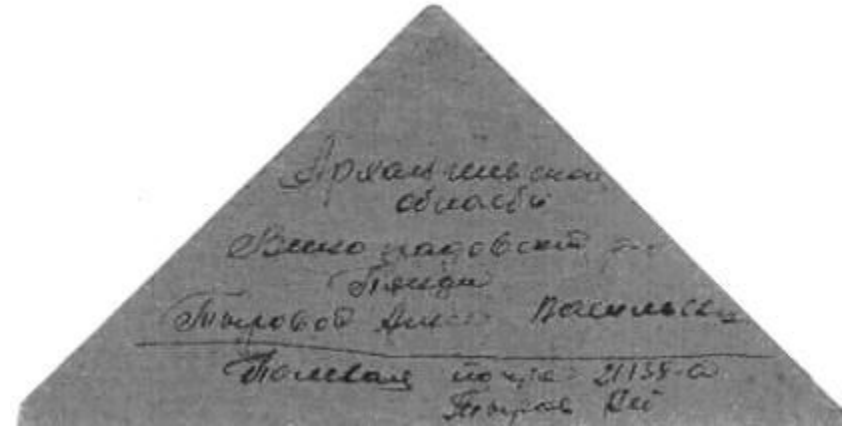 Архангельская
области
Виноградовский
Пянда
Тыровой Васильевн
Полевая почта 21135-а
Тыров